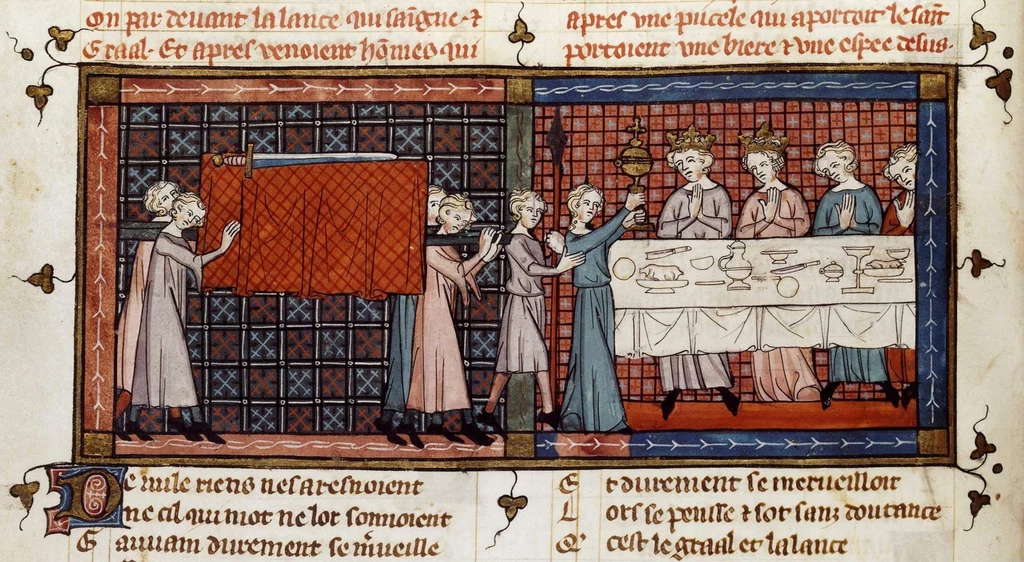 on par deuant la lance qui sangne ⁊
Graal. Et apres uenoient hōmes qui
apres vne pucele qui aportoit le sait
portoient vne biere ⁊ vne espee desus.
De nule riens nes aresnoient
ne cil qui mot ne lor sonnoient
Gauuain durement se mueille
Et durement se merueilloit
Lors se pensse ⁊ sot sanz doutance
Q' cest le graal et la lance